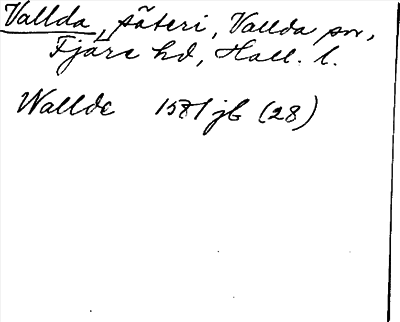 Vallda, säteri, Vallda sn,
Fjäre hd, Hall. l.
Wallde 1581 jb (28)